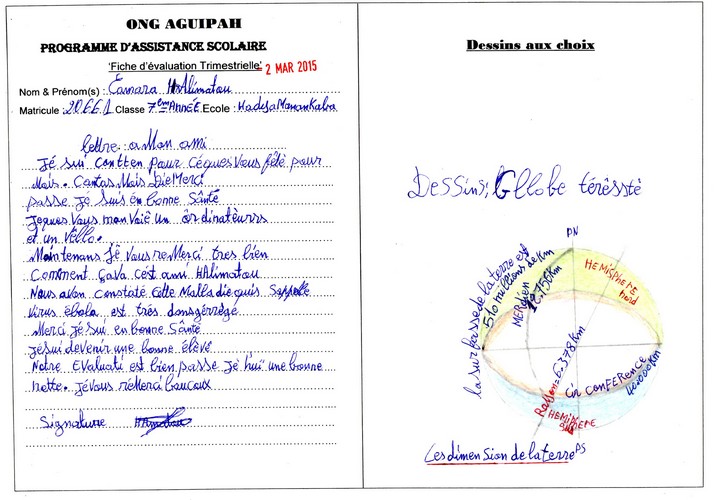 ONG AGUIPAH
PROGRAMME D'ASSISTANCE SCOLAIRE
'Fiche d'évaluation Trimestrielle'
2 MAR 2015
Nom & Prénom(s) : Camara HAlimatou
Matricule : 20661 Classe 7em ANNÉE Ecole : Hadja Maman Kaba
lettre a Mon ami
Jé sui contten pour céques vous fété pour
Mois. Contas Mois DieMerci
passe Jé suis en bonne Sânté
Jeques Vous mon Voiè un ordinateurrs
et un Vello.
Maintenans Jê Vous reMerci tres bien
Comment çava cest ami HAlimatou
Nous avon constaté Cette Malladie quis Sappelle
Virus ébola est très dansgerrégé
Merci jé sui en bonne Sânté
jésui devenir une bonne élévé
Notre Evaluati est bien passe je hui une bonne
notte. jévous réMerci baucoux
Signature HAlimatou
Dessins aux choix
Dessins; Gllobe térêsstè
PN
la surfasse de la terre est
510 millions de Km
MERidien
12.756Km
HEMISPHERE
nord
Rallon=6.378Km
CirCONFERENCE
40.000Km
HEMIS
PHERE
PS
Les dimension de la terre